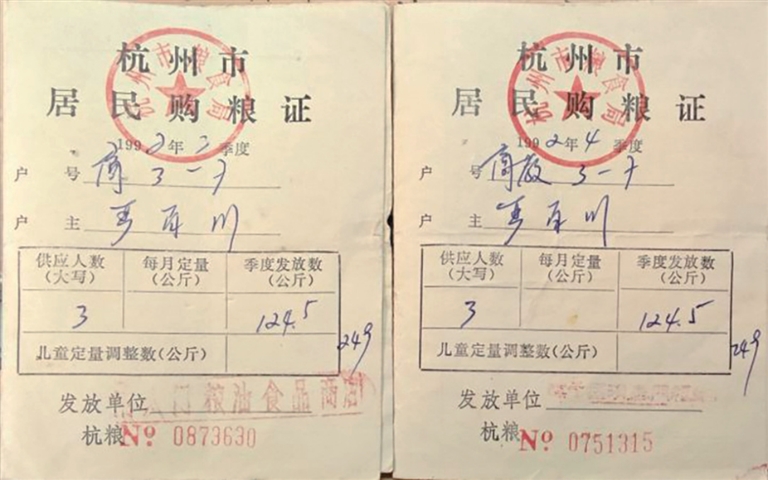 杭州市
居民购粮证
杭州市粮食局
1992年2季度
户 号 商 3-7
户 主
供应人数（大写）
每月定量（公斤）
季度发放数（公斤）
3
124.5
儿童定量调整数（公斤）
249
发放单位 门粮油食品商店
杭粮 № 0873630
杭州市
居民购粮证
杭州市粮食局
1992年4季度
户 号 商 3-7
户 主
供应人数（大写）
每月定量（公斤）
季度发放数（公斤）
3
124.5
儿童定量调整数（公斤）
249
发放单位
杭粮 № 0751315